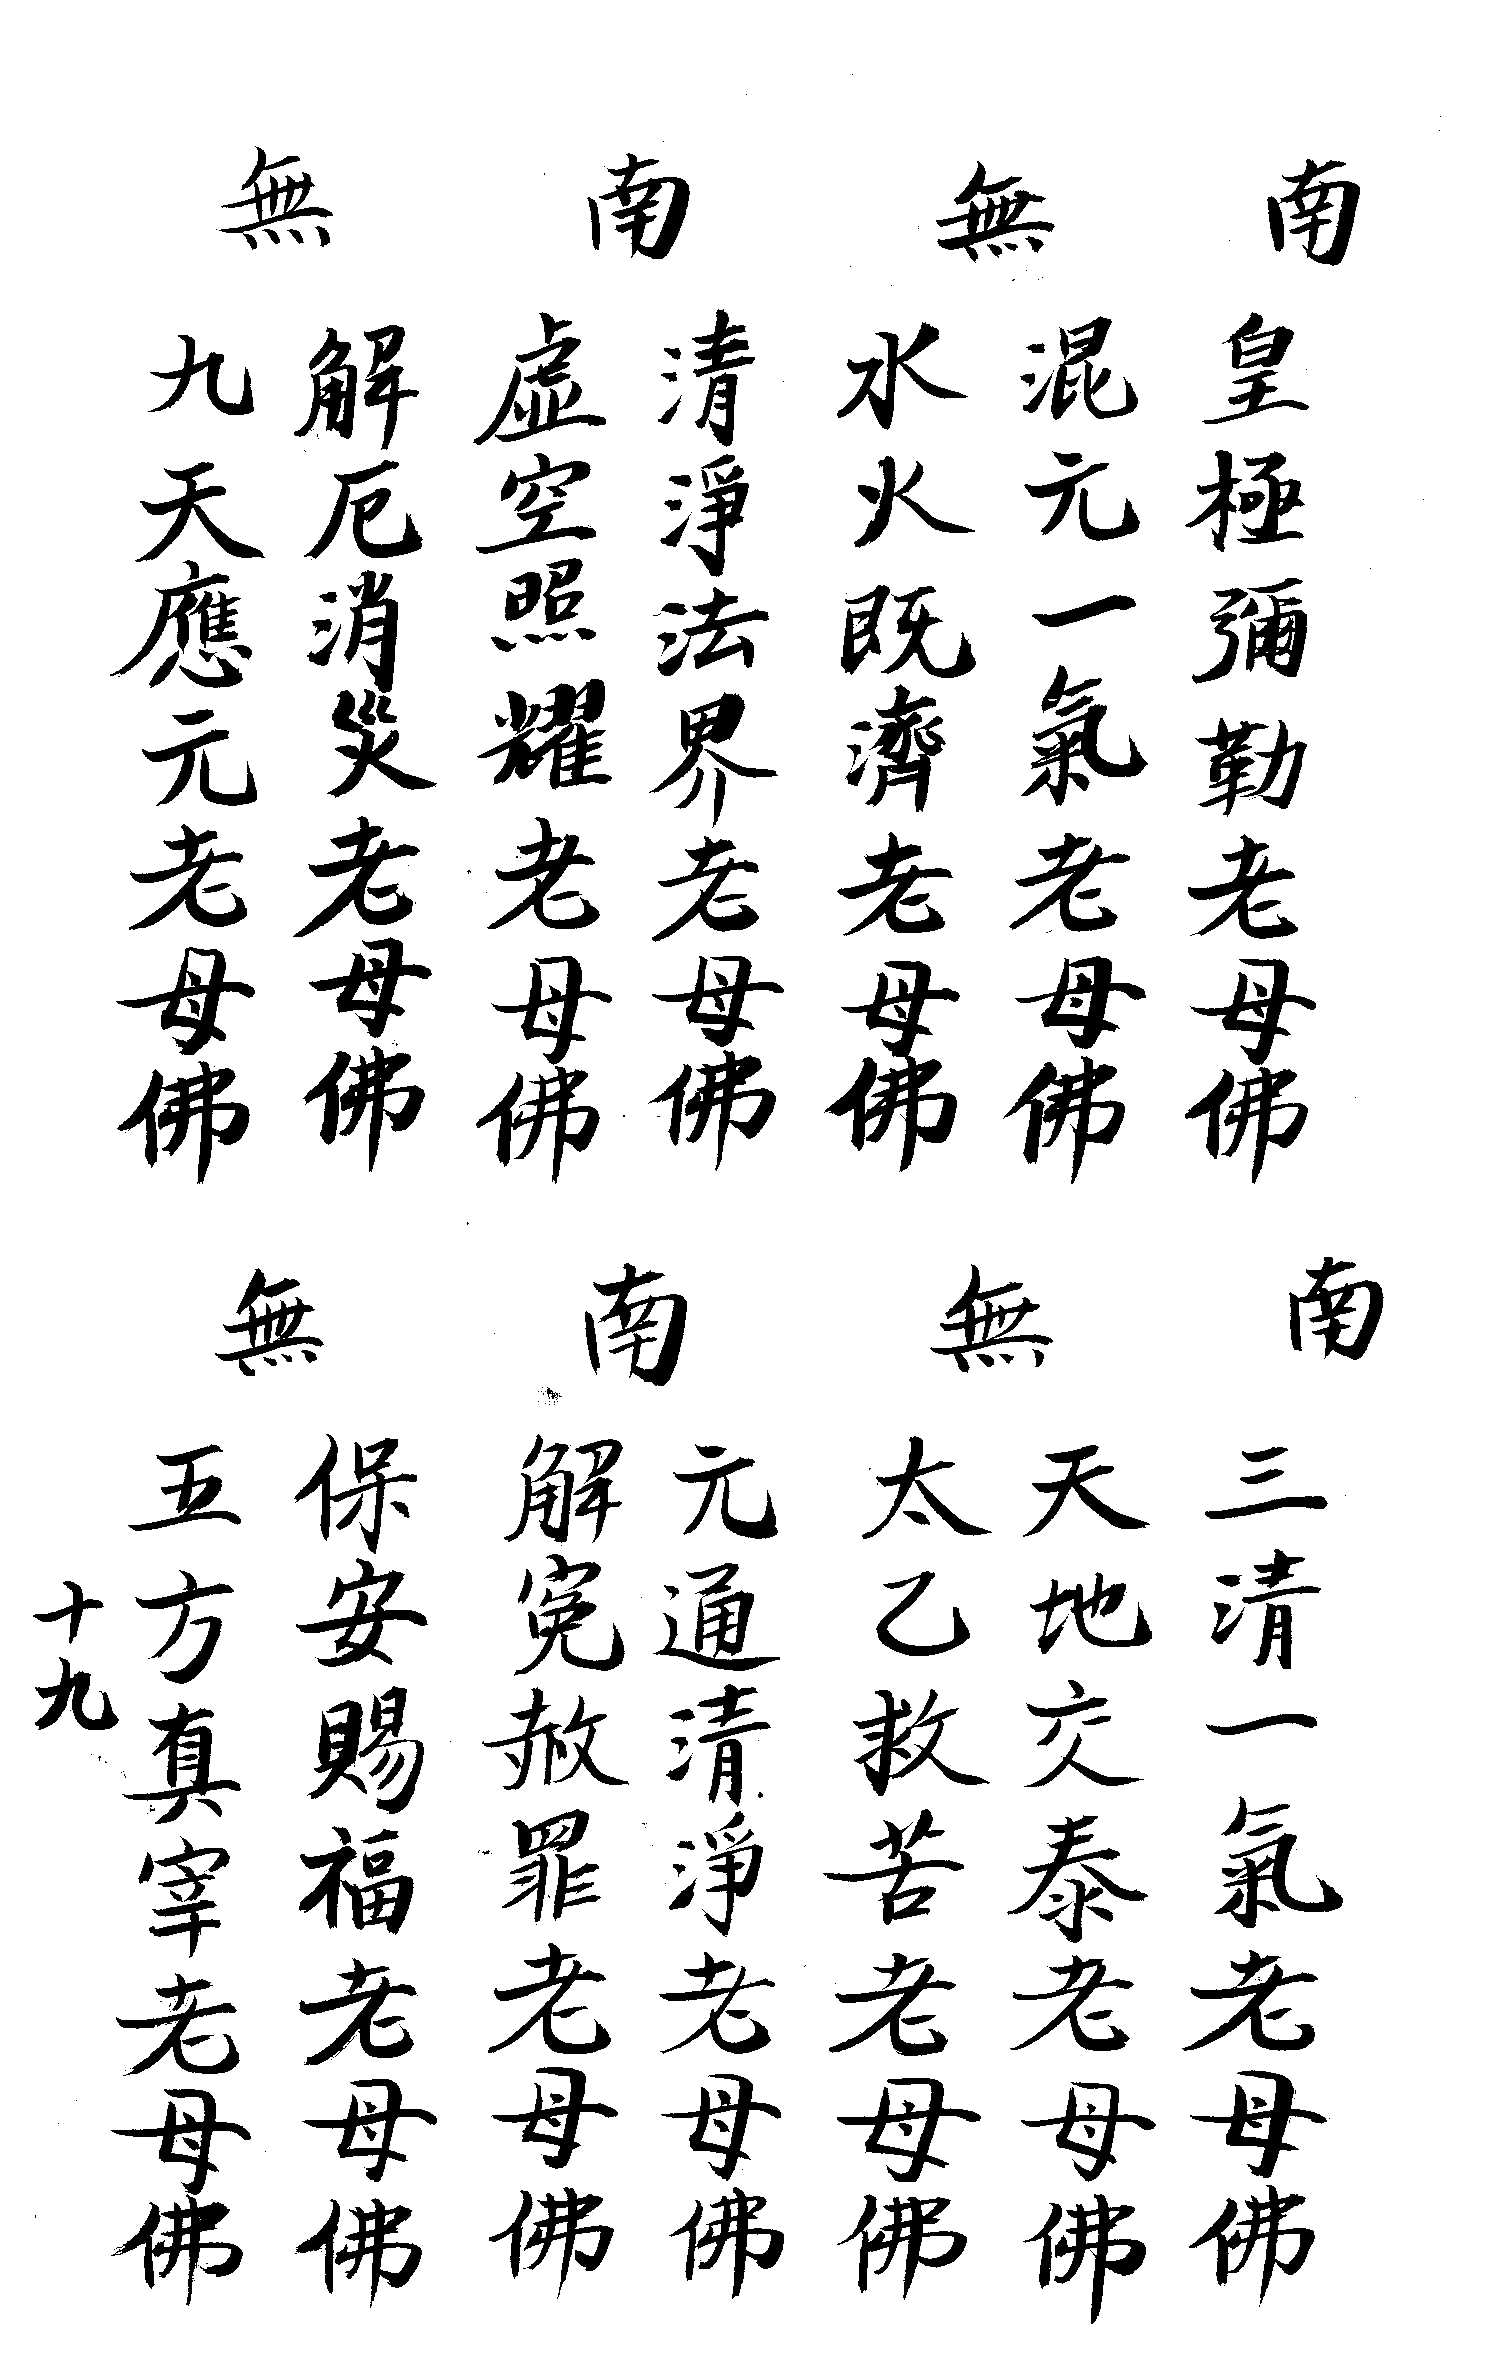 南無南無
皇極彌勒老母佛
混元一氣老母佛
水火既濟老母佛
清淨法界老母佛
虛空照耀老母佛
解厄消災老母佛
九天應元老母佛
南無南無
三清一氣老母佛
天地交泰老母佛
太乙救苦老母佛
元通清淨老母佛
解冤赦罪老母佛
保安賜福老母佛
五方真宰老母佛
十九